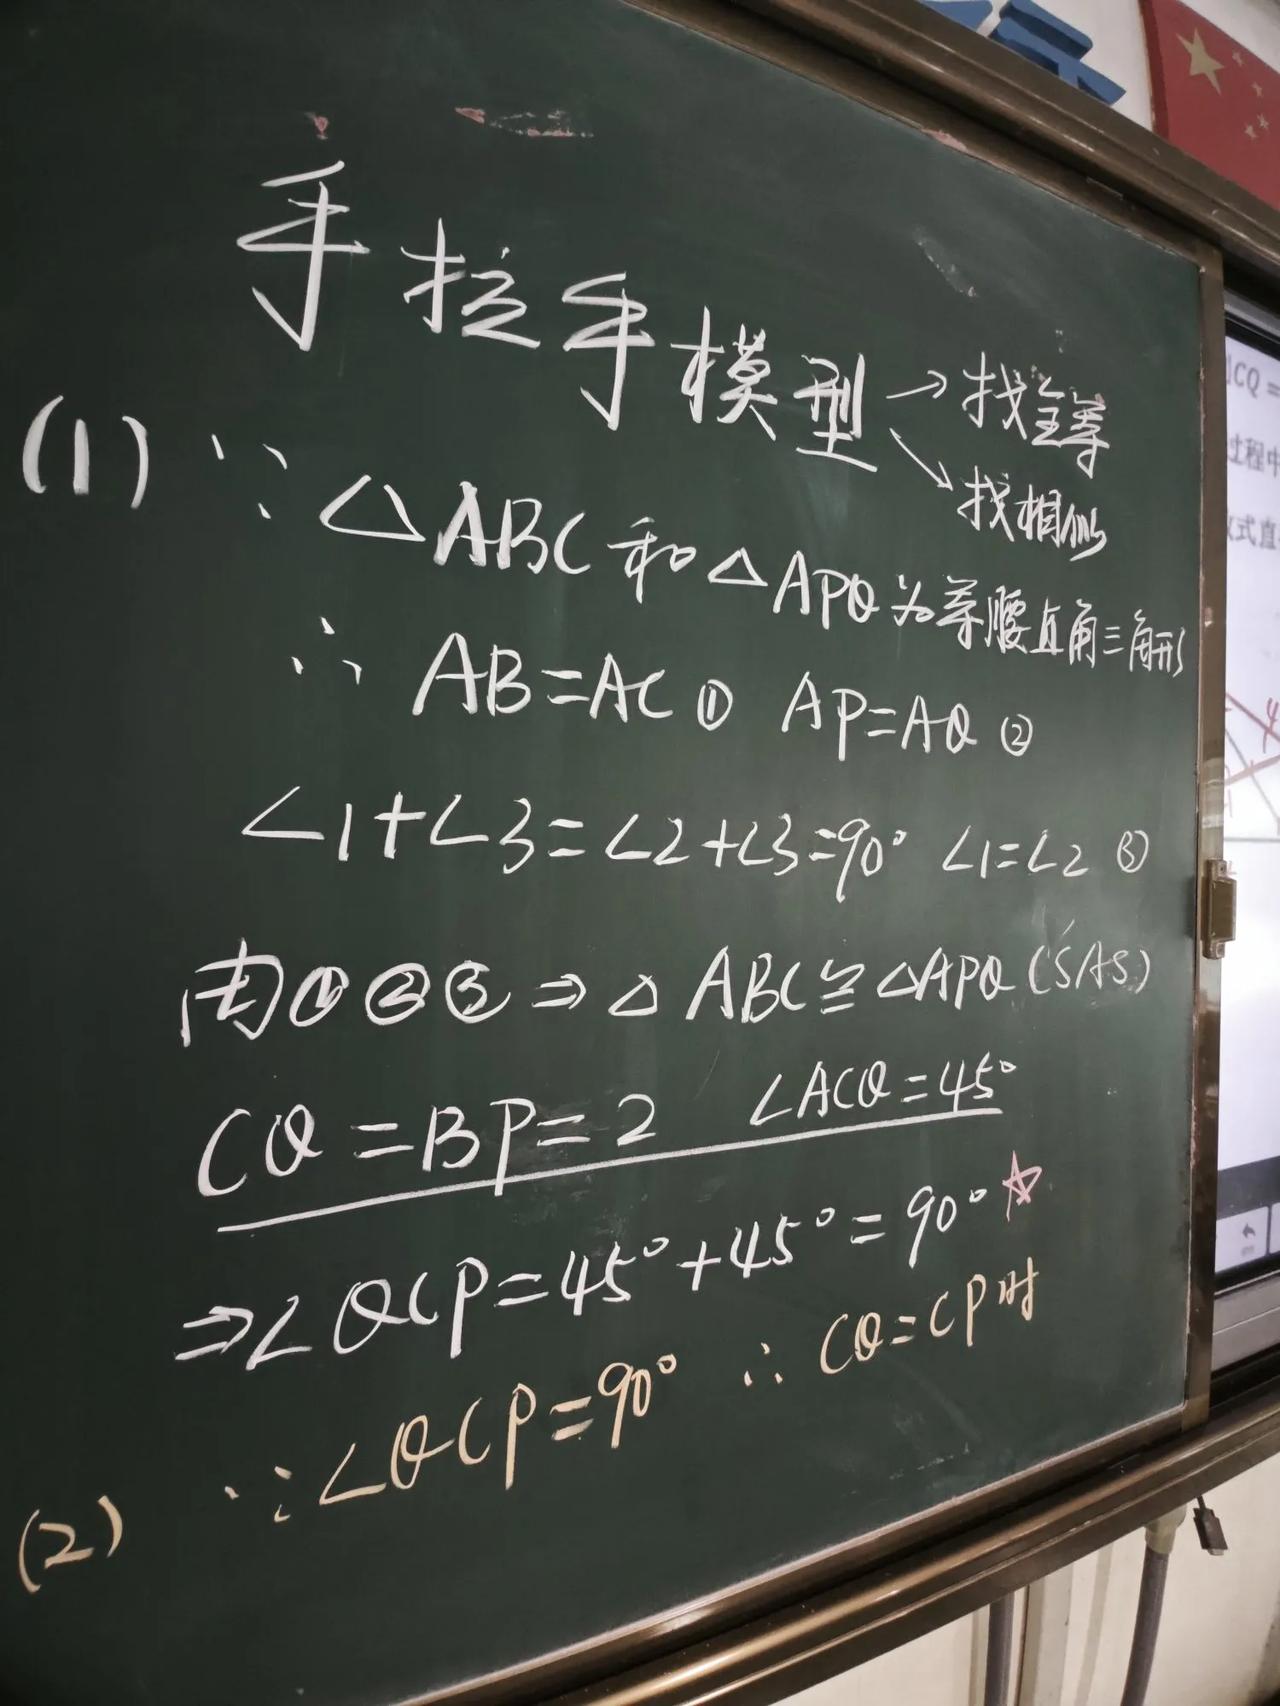 手拉手模型 → 找全等
↘ 找相似
(1) ∵ △ABC和△APQ为等腰直角三角形
∴ AB=AC ① AP=AQ ②
∠1+∠3=∠2+∠3=90° ∠1=∠2 ③
由①②③⇒△ABC≌△APQ(SAS)
CQ=BP=2 ∠ACQ=45°
⇒∠QCP=45°+45°=90°☆
(2) ∵∠QCP=90° ∴ CQ=CP时
CQ=
过程中
式直